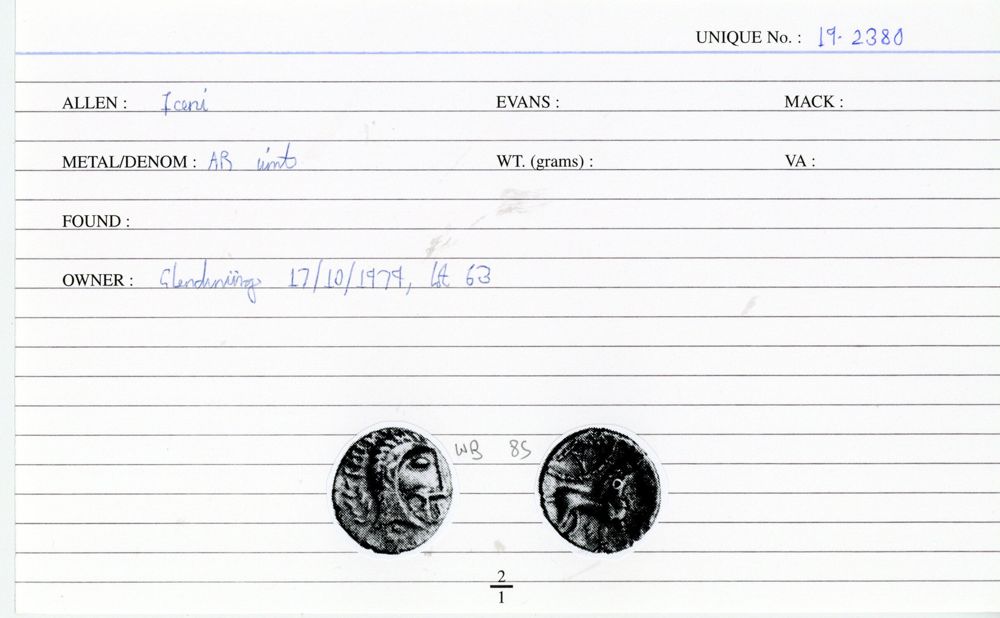 UNIQUE No. : 19. 2380
ALLEN : Iceni EVANS : MACK :
METAL/DENOM : AR unit WT. (grams) : VA :
FOUND :
OWNER : Glendining 17/10/1979, lot 63
WB 85
2
1